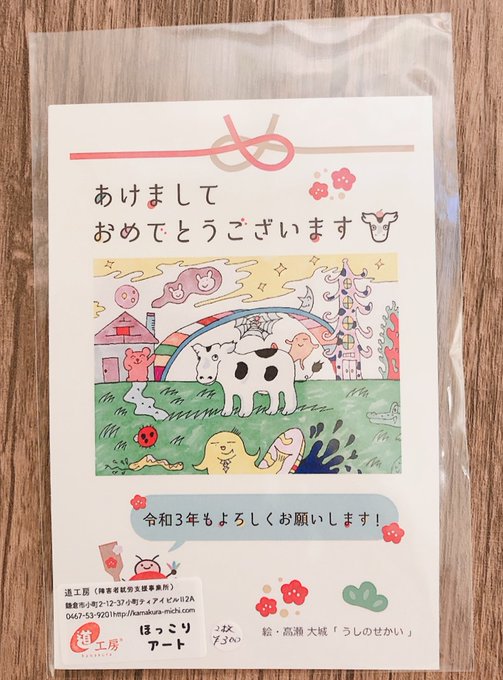 あけまして
おめでとうございます
令和3年もよろしくお願いします!
道工房(障害者就労支援事業所)
鎌倉市小町2-12-37小町ティアイビルⅡ2A
0467-53-9201http://kamakura-michi.com
道工房
ほっこり
アート
2枚
¥300
絵・高瀬 大城「 うしのせかい 」